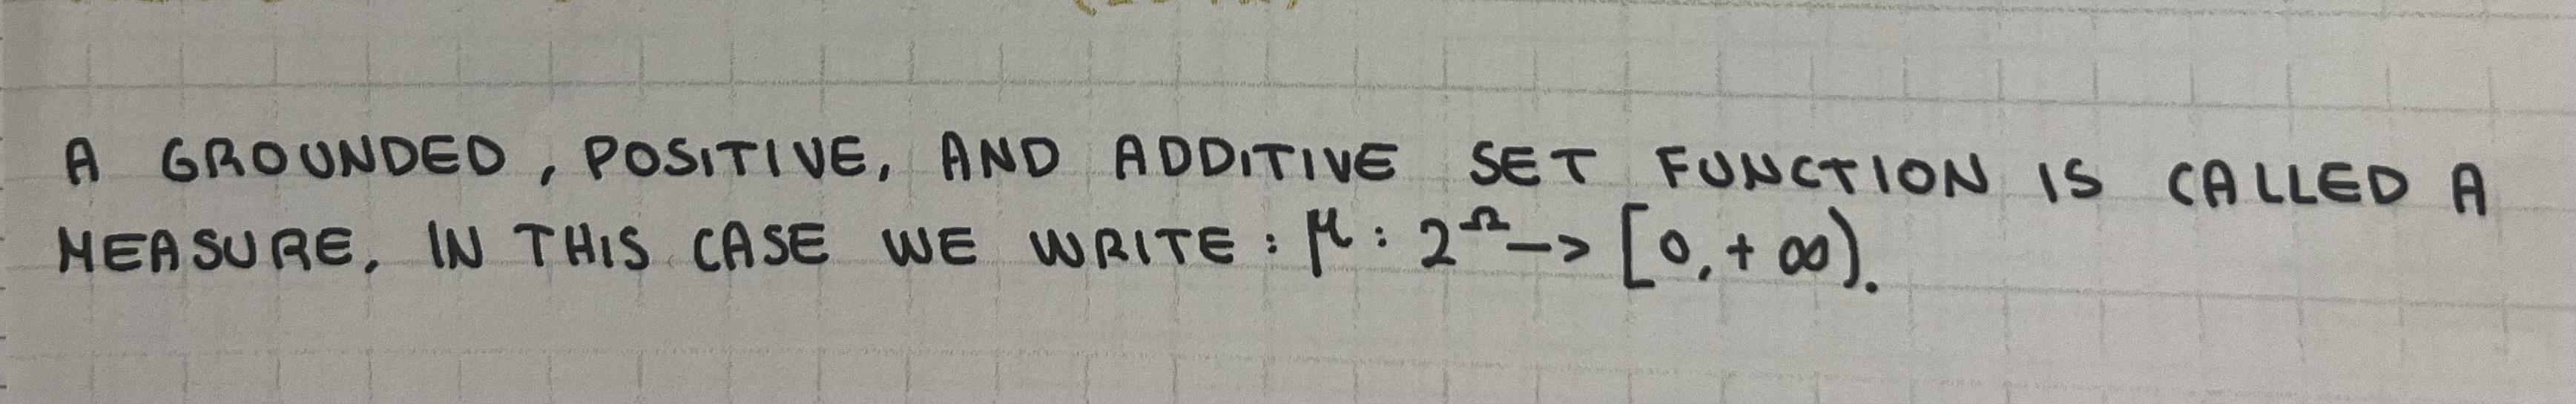 A GROUNDED, POSITIVE, AND ADDITIVE SET FUNCTION IS CALLED A
MEASURE. IN THIS CASE WE WRITE: μ: 2^Ω -> [0, + ∞).